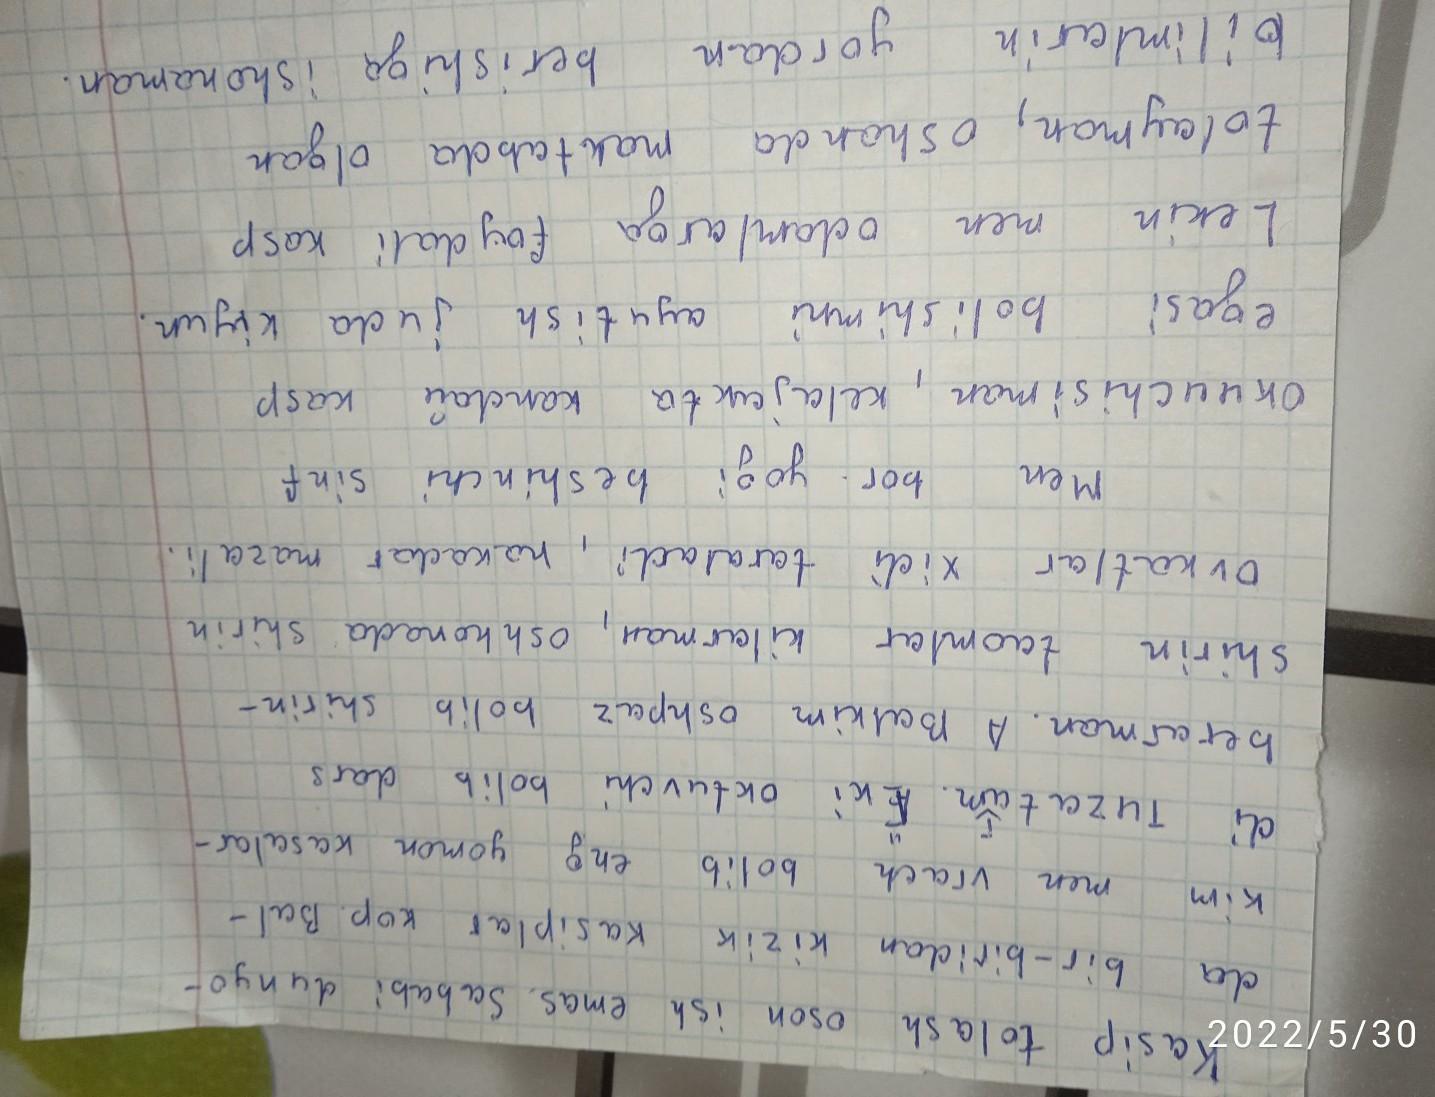 Kasip tolash oson ish emas. Sababi dunyo-
da bir-biridan kizik kasiplar kop. Bal-
kim men vrach bolib eng yomon kasalar-
di Tuzatam. Eki oktuvchi bolib dars
berarman. A Balkim oshpaz bolib shirin-
shirin taomlar kilarman, oshhonada shirin
ovkatlar xidi taraladi, nakadar mazali.
Men bor yogi beshinchi sinf
okuuchisiman, kelajakta kandaŭ kasp
egasi bolishimni ayutish juda kiyun.
Lekin men odamlarga foydali kasp
tolayman, oshanda maktabda olgan
bilimlarin yordam berishiga ishonaman.
2022/5/30